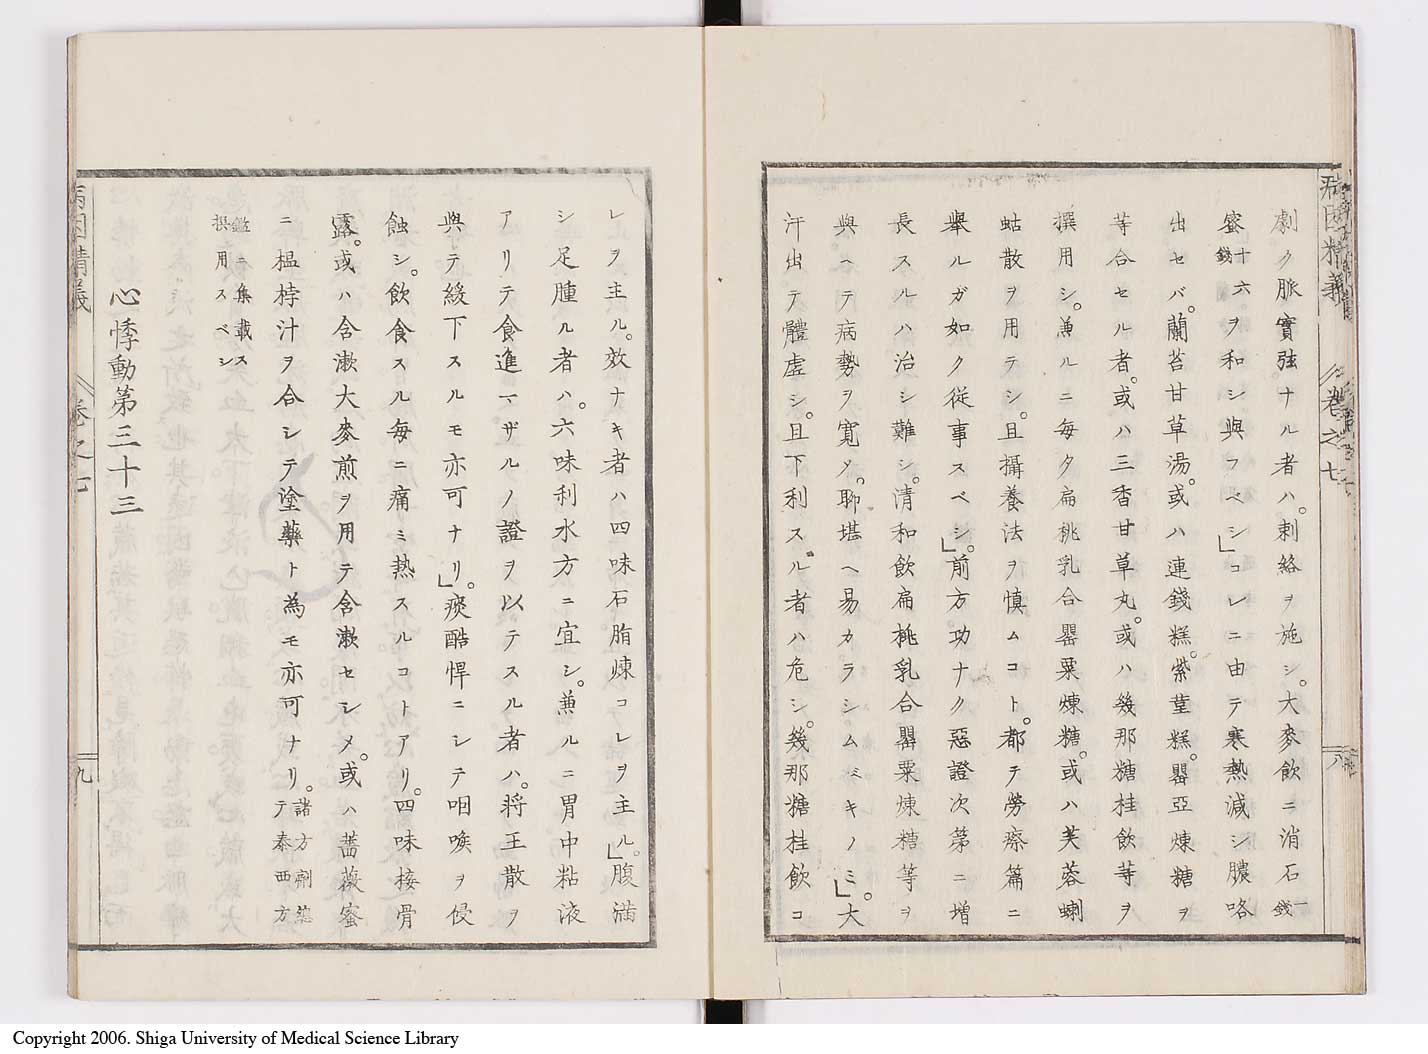 病因精義
卷之七
八
劇ク脈實弦ナル者ハ。刺絡ヲ施シ。大麥飲ニ消石一錢
蜜十六錢ヲ和シ與フベシ」コレニ由テ寒熱減シ膿咯
出セバ。蘭苔甘草湯。或ハ連錢糕。紫菫糕。罌亞煉糖ヲ
等合セル者。或ハ三香甘草丸。或ハ幾那糖桂飲等ヲ
撰用シ。兼ルニ每夕扁桃乳合罌粟煉糖。或ハ芙蓉蝲
蛄散ヲ用テシ。且攝養法ヲ慎ムコト。都テ勞瘵篇ニ
舉ルガ如ク從事スベシ」前方功ナク惡證次第ニ增
長スルハ治シ難シ。清和飲扁桃乳合罌粟煉糖等ヲ
與ヘテ病勢ヲ寬メ。聊堪ヘ易カラシムベキノミ」大
汗出テ體虛シ。且下利スル者ハ危シ。幾那糖桂飲コ
レヲ主ル。效ナキ者ハ四味石脂煉コレヲ主ル」腹滿
シ足腫ル者ハ。六味利水方ニ宜シ。兼ルニ胃中粘液
アリテ食進マザルノ證ヲ以テスル者ハ。將王散ヲ
與テ緩下スルモ亦可ナリ」痰酷悍ニシテ咽喉ヲ侵
蝕シ。飲食スル每ニ痛ミ熱スルコトアリ。四味接骨
露。或ハ含漱大麥煎ヲ用テ含漱セシメ。或ハ薔薇蜜
ニ榲桲汁ヲ合シテ塗藥ト為モ亦可ナリ。諸方劑總テ泰西方
鑑ニ集載ス撰用スベシ
心悸動第三十三
病因精義
卷之七
九
Copyright 2006. Shiga University of Medical Science Library